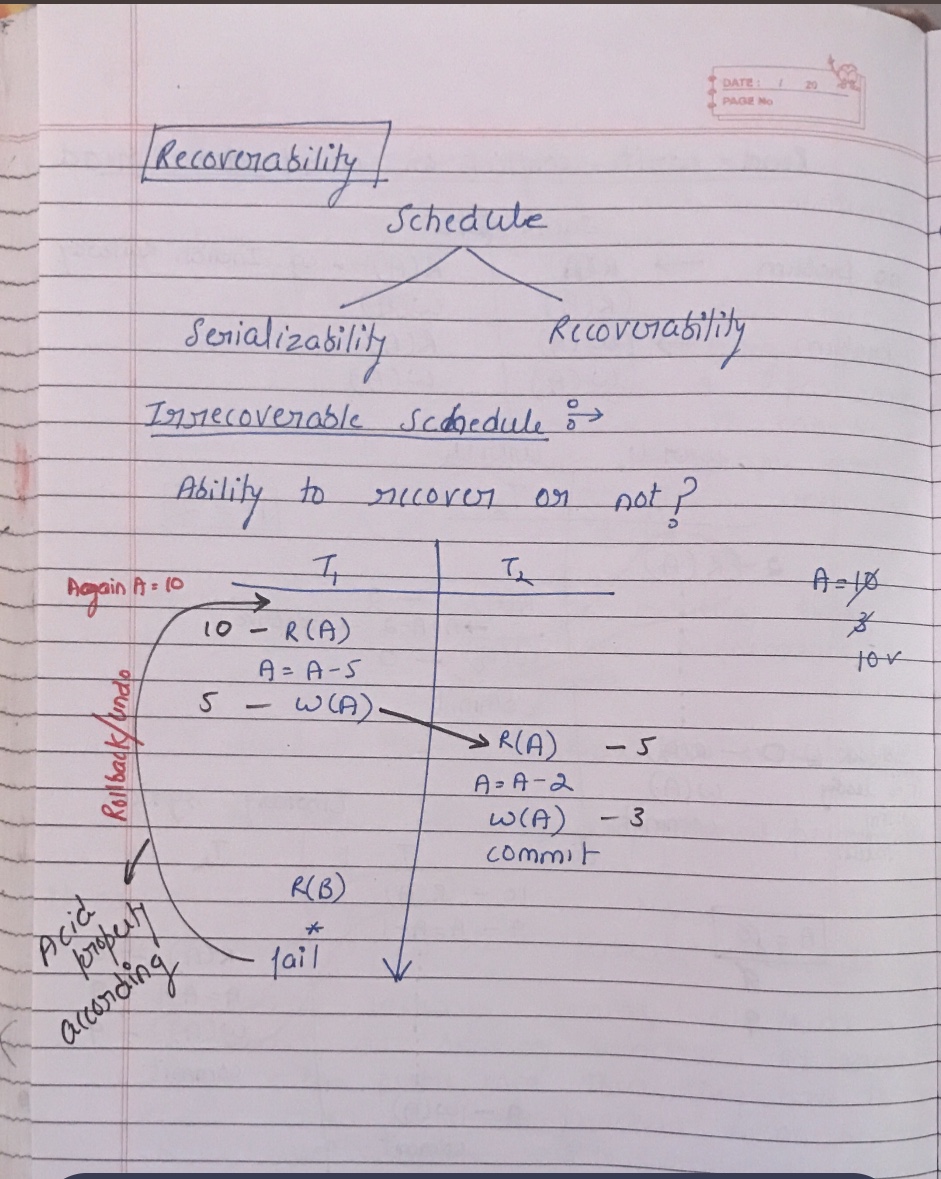 DATE: / 20
PAGE No
Recoverability
Schedule
Serializability Recoverability
Irrecoverable Schedule :→
Ability to recover or not?
T₁ T₂
Again A = 10
A = 10
3
10 ✓
10 – R(A)
A = A-5
5 – W(A)
R(A) – 5
A = A-2
W(A) – 3
commit
R(B)
*
fail
Rollback/undo
Acid
property
according